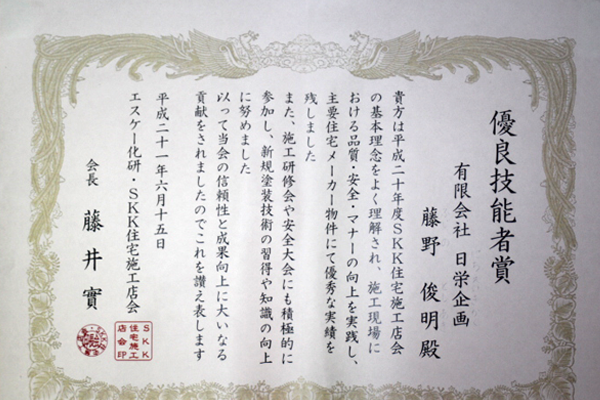 優良技能者賞
有限会社 日栄企画
藤野 俊明殿
貴方は平成二十年度SKK住宅施工店会
の基本理念をよく理解され、施工現場に
おける品質・安全・マナーの向上を実践し、
主要住宅メーカー物件にて優秀な実績を
残しました
また、施工研修会や安全大会にも積極的に
参加し、新規塗装技術の習得や知識の向上
に努めました
以って当会の信頼性と成果向上に大いなる
貢献をされましたのでこれを讃え表します
平成二十一年六月十五日
エスケー化研・SKK住宅施工店会
会長 藤井實
SKK
住宅施工
店会印